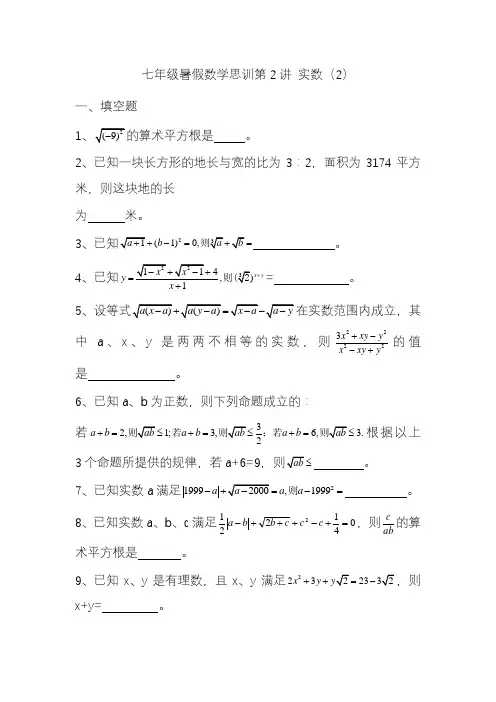 七年级暑假数学思训第2讲 实数（2）
一、填空题
1、√(-9)²的算术平方根是 。
2、已知一块长方形的地长与宽的比为3：2，面积为3174平方
米，则这块地的长
为 米。
3、已知√(a+1)+(b-1)²=0,则∛a+√b= 。
4、已知y=(√(1-x²)+√(x²-1)+4)/(x+1),则(∛2)^(x+y)= 。
5、设等式√(a(x-a))+√(a(y-a))=√(x-a)-√(a-y)在实数范围内成立，其
中a、x、y是两两不相等的实数，则(3x²+xy-y²)/(x²-xy+y²)的值
是 。
6、已知a、b为正数，则下列命题成立的：
若a+b=2,则√ab≤1;若a+b=3,则√ab≤3/2；若a+b=6,则√ab≤3.根据以上
3个命题所提供的规律，若a+6=9，则√ab≤ 。
7、已知实数a满足|1999-a|+√(a-2000)=a,则a-1999²= 。
8、已知实数a、b、c满足1/2|a-b|+√(2b+c)+c²-c+1/4=0，则c/ab的算
术平方根是 。
9、已知x、y是有理数，且x、y满足2x²+3y+y√2=23-3√2，则
x+y= 。